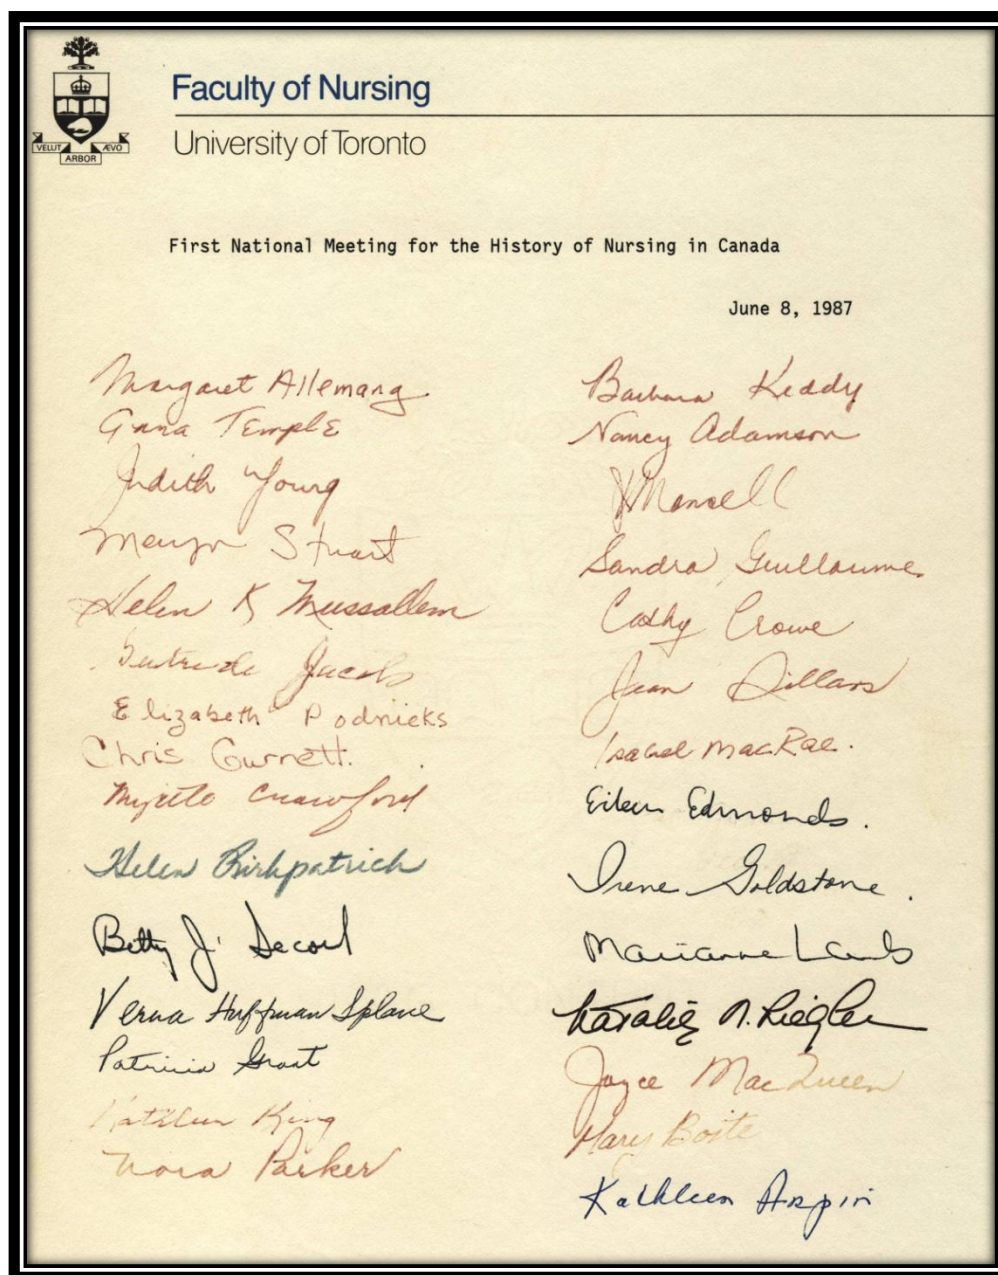 VELUT ARBOR ÆVO
Faculty of Nursing
University of Toronto
First National Meeting for the History of Nursing in Canada
June 8, 1987
Margaret Allemang
Anna Temple
Judith Young
Meryn Stuart
Helen K Mussallem
Gertrude Jacobs
Elizabeth Podnieks
Chris Gurnett.
Crawford
Helen Kirkpatrick
Betty J. Secord
Verna Huffman Splane
Patricia Grant
Kathleen King
Nora Parker
Barbara Keddy
Nancy Adamson
Sandra Guillaume
Cathy Crowe
Jean Dillars
Isabel MacRae.
Eileen Edmonds.
Irene Goldstone.
Marianne Lamb
Natalie N. Riegler
Joyce MacQueen
Mary Boite
Kathleen Arpin